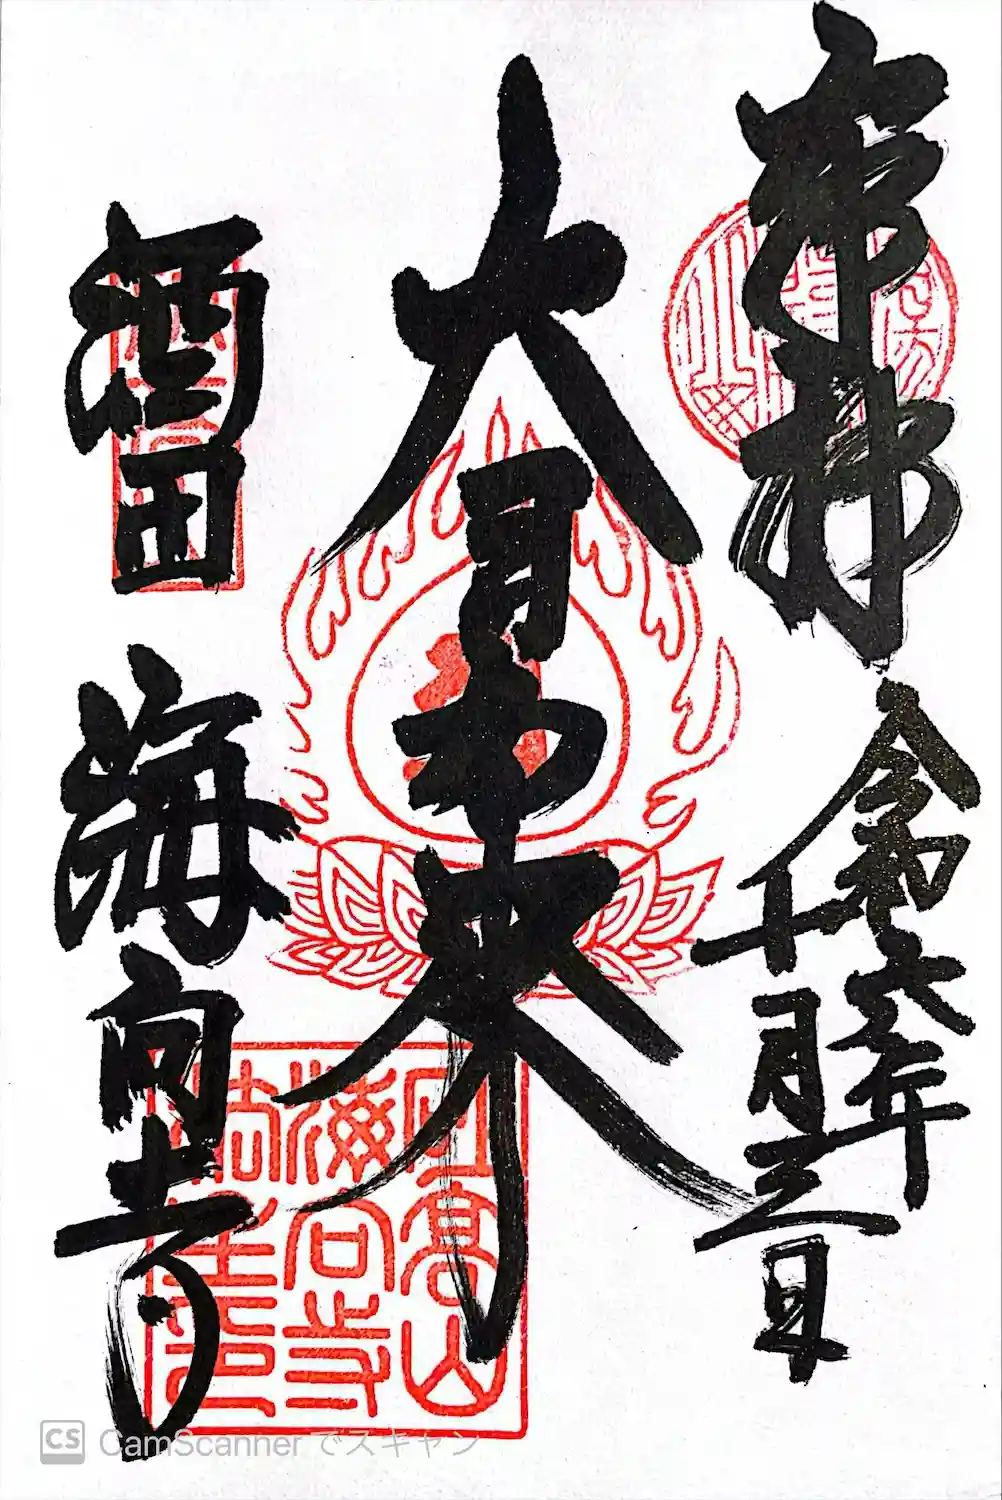 奉拝
令和六年
十月三日
大日如来
酒田 海向寺
砂高山
海向寺
CS CamScanner でスキャン